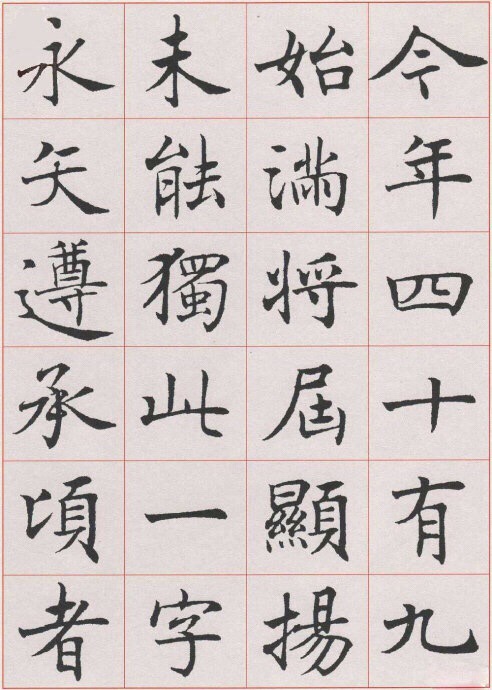 今年四十有九
始満將屆顯揚
未能獨此一字
永矢遵承頃者